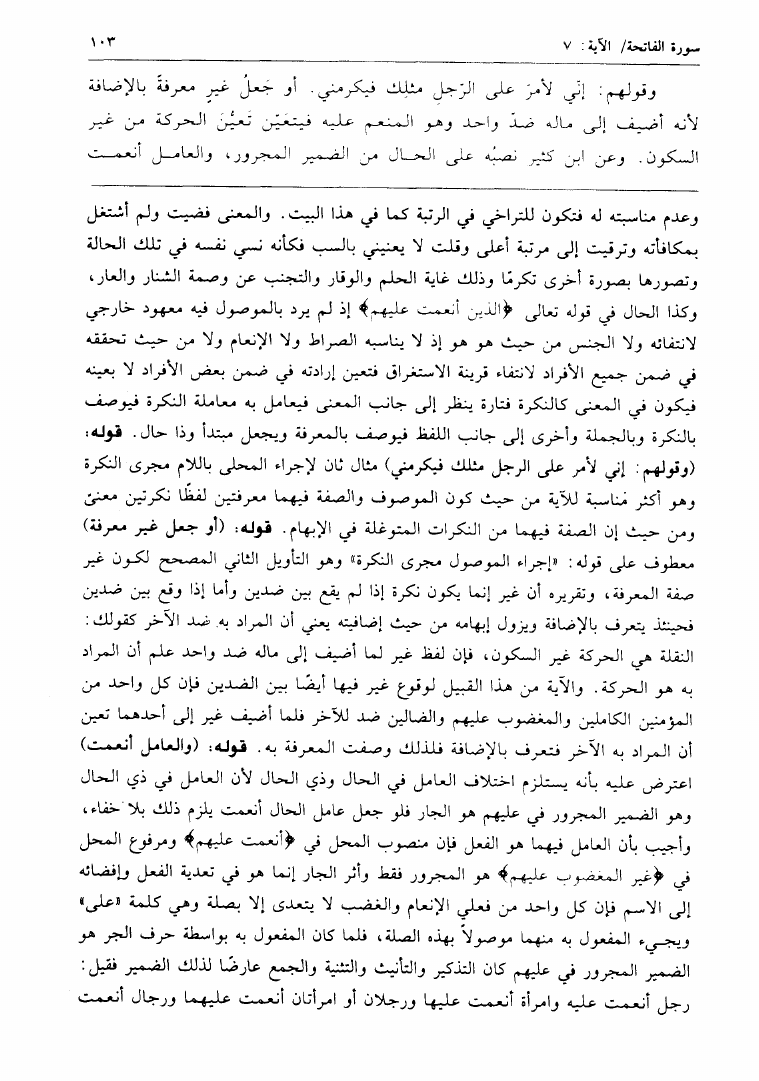 سورة الفاتحة/ الآية: ٧
١٠٣
وقولهم: إنّي لأمرّ على الرّجلِ مثلِك فيكرمني. أو جَعلُ غيرٍ معرفةً بالإضافة
لأنه أضيف إلى ماله ضدّ واحد وهو المنعم عليه فيتعَيّن تَعيُّنَ الحركة من غير
السكون. وعن ابن كثير نصبُه على الحال من الضمير المجرور، والعامل أنعمت
وعدم مناسبته له فتكون للتراخي في الرتبة كما في هذا البيت. والمعنى فضيت ولم أشتغل
بمكافأته وترقيت إلى مرتبة أعلى وقلت لا يعنيني بالسب فكأنه نسي نفسه في تلك الحالة
وتصورها بصورة أخرى تكرمًا وذلك غاية الحلم والوقار والتجنب عن وصمة الشنار والعار،
وكذا الحال في قوله تعالى ﴿الذين أنعمت عليهم﴾ إذ لم يرد بالموصول فيه معهود خارجي
لانتفائه ولا الجنس من حيث هو هو إذ لا يناسبه الصراط ولا الإنعام ولا من حيث تحققه
في ضمن جميع الأفراد لانتفاء قرينة الاستغراق فتعين إرادته في ضمن بعض الأفراد لا بعينه
فيكون في المعنى كالنكرة فتارة ينظر إلى جانب المعنى فيعامل به معاملة النكرة فيوصف
بالنكرة وبالجملة وأخرى إلى جانب اللفظ فيوصف بالمعرفة ويجعل مبتدأ وذا حال. قوله:
(وقولهم: إني لأمر على الرجل مثلك فيكرمني) مثال ثان لإجراء المحلى باللام مجرى النكرة
وهو أكثر مناسبة للآية من حيث كون الموصوف والصفة فيهما معرفتين لفظًا نكرتين معنىً
ومن حيث إن الصفة فيهما من النكرات المتوغلة في الإبهام. قوله: (أو جعل غير معرفة)
معطوف على قوله: «إجراء الموصول مجرى النكرة» وهو التأويل الثاني المصحح لكون غير
صفة المعرفة، وتقريره أن غير إنما يكون نكرة إذا لم يقع بين ضدين وأما إذا وقع بين ضدين
فحينئذ يتعرف بالإضافة ويزول إبهامه من حيث إضافيته يعني أن المراد به ضد الآخر كقولك:
النقلة هي الحركة غير السكون، فإن لفظ غير لما أضيف إلى ماله ضد واحد علم أن المراد
به هو الحركة. والآية من هذا القبيل لوقوع غير فيها أيضًا بين الضدين فإن كل واحد من
المؤمنين الكاملين والمغضوب عليهم والضالين ضد للآخر فلما أضيف غير إلى أحدهما تعين
أن المراد به الآخر فتعرف بالإضافة فلذلك وصفت المعرفة به. قوله: (والعامل أنعمت)
اعترض عليه بأنه يستلزم اختلاف العامل في الحال وذي الحال لأن العامل في ذي الحال
وهو الضمير المجرور في عليهم هو الجار فلو جعل عامل الحال أنعمت يلزم ذلك بلا خفاء،
وأجيب بأن العامل فيهما هو الفعل فإن منصوب المحل في ﴿أنعمت عليهم﴾ ومرفوع المحل
في ﴿غير المغضوب عليهم﴾ هو المجرور فقط وأثر الجار إنما هو في تعدية الفعل وإفضائه
إلى الاسم فإن كل واحد من فعلي الإنعام والغضب لا يتعدى إلا بصلة وهي كلمة «على»
ويجيء المفعول به منهما موصولاً بهذه الصلة، فلما كان المفعول به بواسطة حرف الجر هو
الضمير المجرور في عليهم كان التذكير والتأنيث والتثنية والجمع عارضًا لذلك الضمير فقيل:
رجل أنعمت عليه وامرأة أنعمت عليها ورجلان أو امرأتان أنعمت عليهما ورجال أنعمت